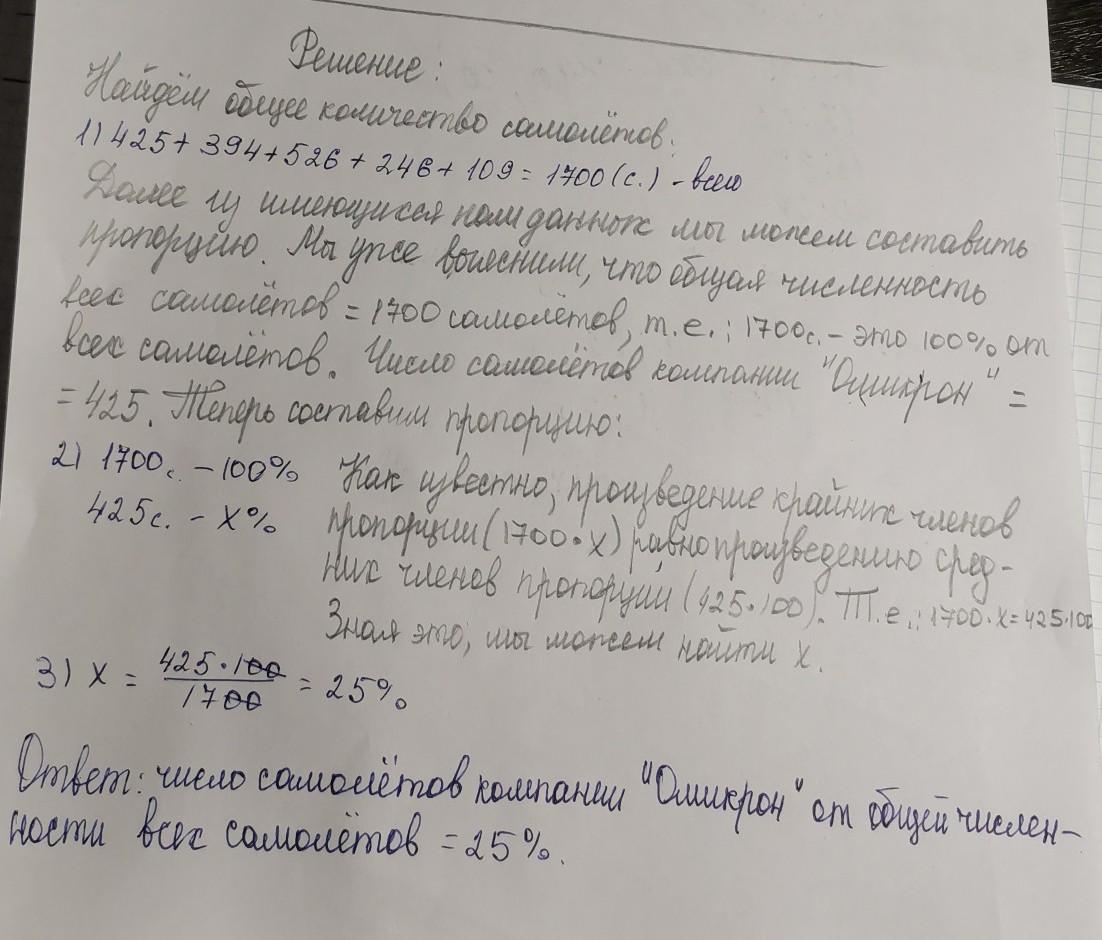 Решение:
Найдём общее количество самолётов.
1) 425 + 394 + 526 + 246 + 109 = 1700 (с.) - всего
Далее из имеющихся нам данных мы можем составить
пропорцию. Мы уже выяснили, что общая численность
всех самолётов = 1700 самолётов, т.е.: 1700с. - это 100% от
всех самолётов. Число самолётов компании "Омикрон" =
= 425. Теперь составим пропорцию:
2) 1700с. - 100%
425с. - x%
Как известно, произведение крайних членов
пропорции (1700 • x) равно произведению сред-
них членов пропорции (425•100). Т.е.: 1700•x=425•100
Зная это, мы можем найти x.
3) x = 425•100 / 1700 = 25%
Ответ: число самолётов компании "Омикрон" от общей числен-
ности всех самолётов = 25%.